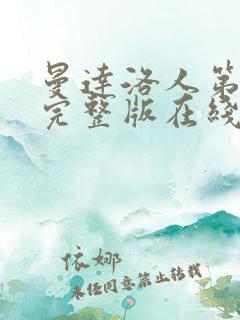 曼达洛人第
完整版在线
依娜
未经同意禁止转载